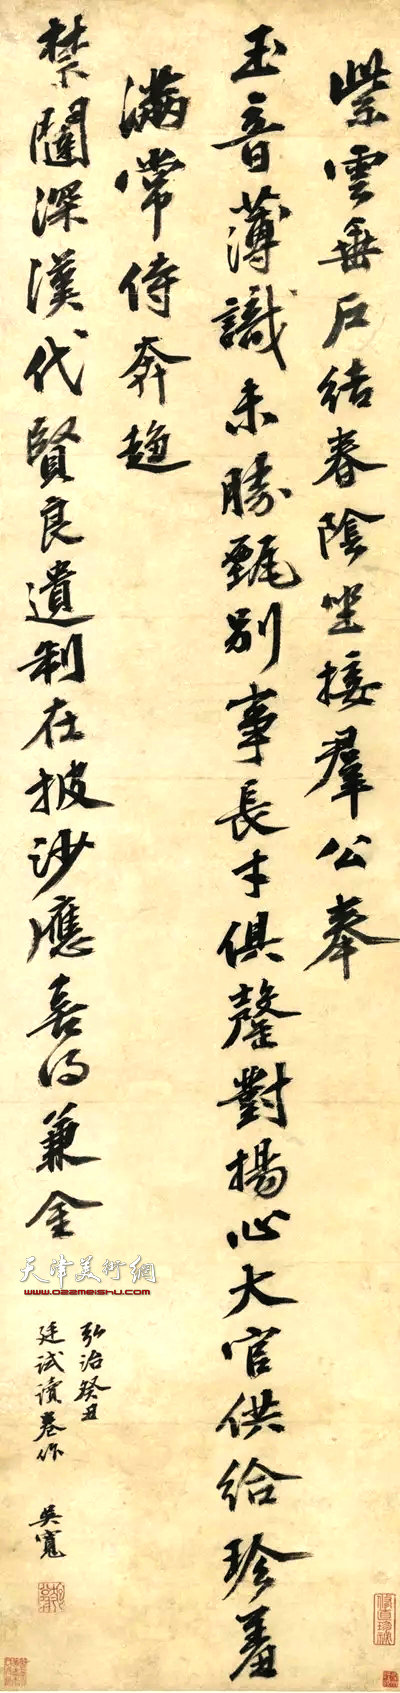 紫雲垂戶結春陰坐接羣公奉
玉音薄識未勝甄別事長才俱罄對揚心大官供給珍羞
滿常侍奔趨
禁闥深漢代賢良遺制在披沙應喜得兼金
弘治癸丑
廷試讀卷作 吳寬
天津美術網
www.022meishu.com